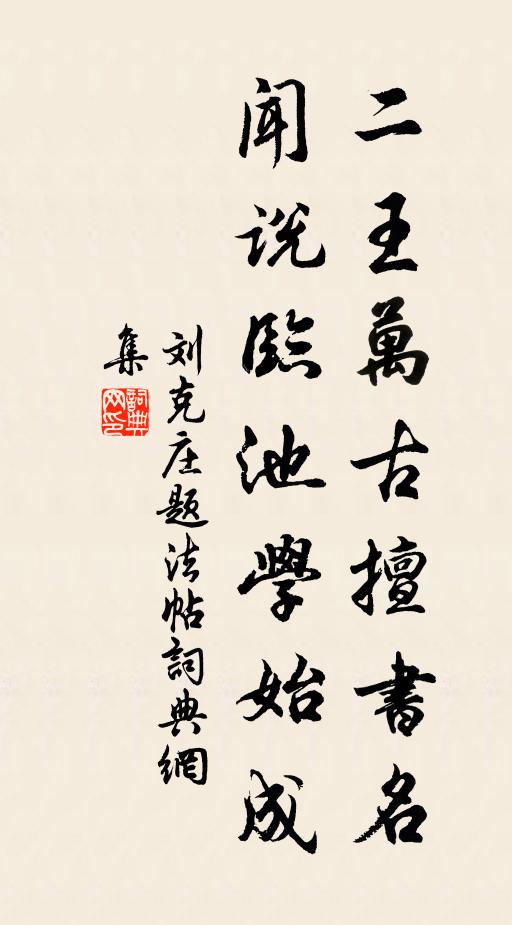 二王萬古擅書名
聞説臨池學始成
刘克庄题法帖詞典網
集
詞典
网印